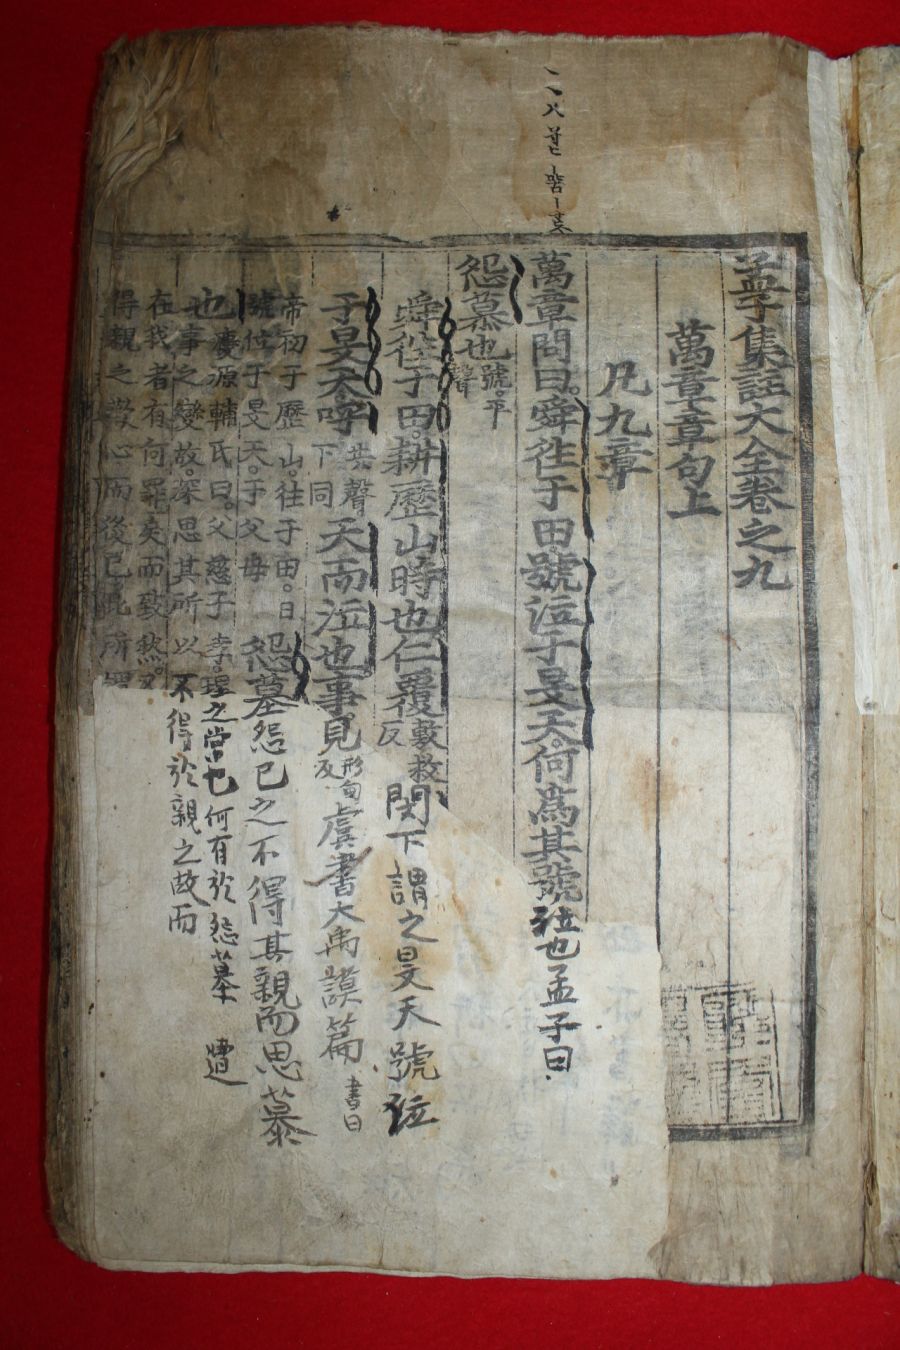 孟子集註大全卷之九
萬章章句上
凡九章
萬章問曰。舜往于田。號泣于旻天。何爲其號泣也孟子曰
怨慕也號。平聲
舜往于田。耕歷山時也。仁覆敷救反閔下謂之旻天號泣
于旻天。呼去聲下同天而泣也。事見形甸反虞書大禹謨篇書曰
帝初于歷山。往于田。日
號泣于旻天。于父母怨慕怨己之不得其親而思慕
也慶源輔氏曰。父慈子孝。理之常也何有於怨慕 遭
事之變故。深思其所以不得於親之故而
在我者有何罪矣而致然。又
得親之懽心而後已此所謂